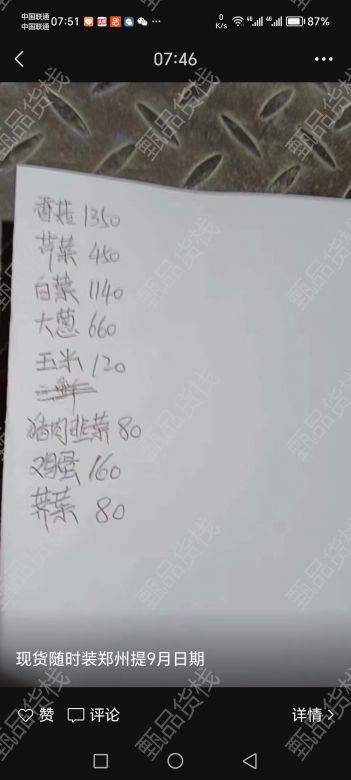 中国联通
中国联通
07:51
0
K/s
4G
4G
87%
07:46
香菇 1350
芹菜 450
白菜 1140
大葱 660
玉米 120
三鲜
猪肉韭菜 80
鸡蛋 160
荠菜 80
现货随时装郑州提9月日期
赞
评论
详情
甄品货栈